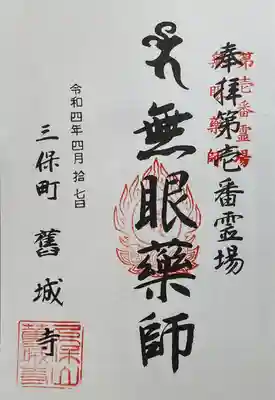 奉拝第壱番霊場
第壱番霊場
無眼薬師
無眼藥師
令和四年四月拾七日
三保町 舊城寺